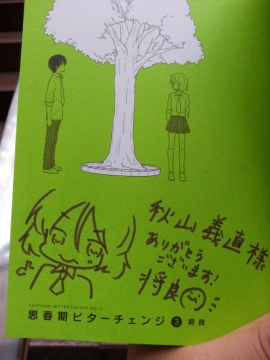 秋山義直様
ありがとう
ございます!
将良
SHISHUNKI BITTER CHANGE VOL.3
思春期ビターチェンジ 3 将良